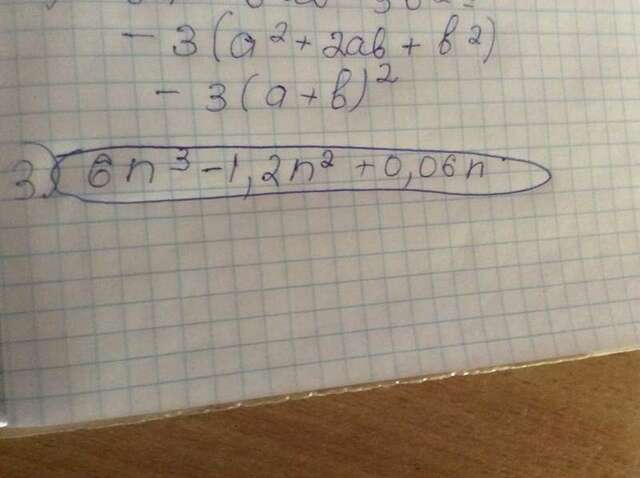 - 3(a² + 2ab + b²)
- 3(a + b)²
3) 6n³ - 1,2n² + 0,06n